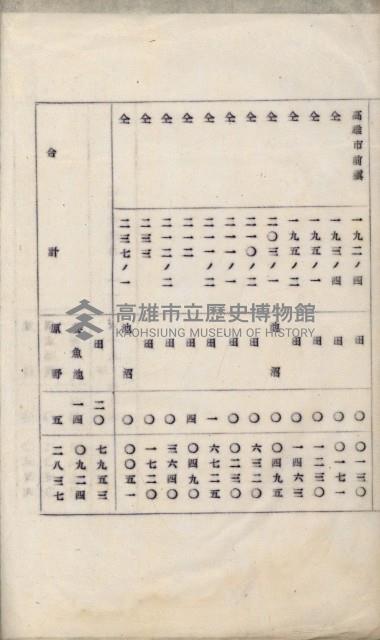 高雄市前鎮 一九二ノ四 田 〇 〇一三〇
仝 一九三ノ四 田 〇 〇一七一
仝 一九五ノ一 田 〇 一二三〇
仝 一九五ノ二 田 〇 一四六三
仝 二〇三ノ一 池沼 〇 〇四九五
仝 二一〇ノ二 田 〇 六三二〇
仝 二一一ノ一 田 〇 〇二三〇
仝 二一一ノ二 田 一 六七二五
仝 二一二 田 四 〇四九〇
仝 二一二ノ二 田 〇 三六四〇
仝 二三三 田 〇 一七二〇
仝 二三七ノ一 池沼 〇 〇〇五一
合計 田 二〇 七九五三
魚池 一四 〇九二四
原野 五 二八三七
高雄市立歷史博物館
KAOHSIUNG MUSEUM OF HISTORY